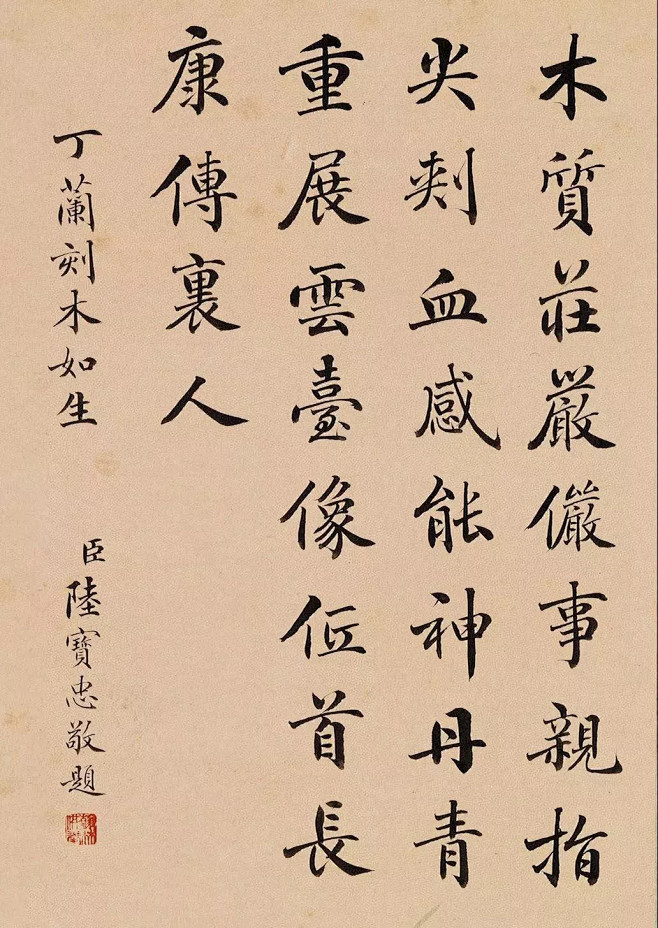 木質莊嚴儼事親指
尖刾血感能神丹青
重展雲臺像伍首長
康傳裏人
丁蘭刻木如生
臣陸寶忠敬題